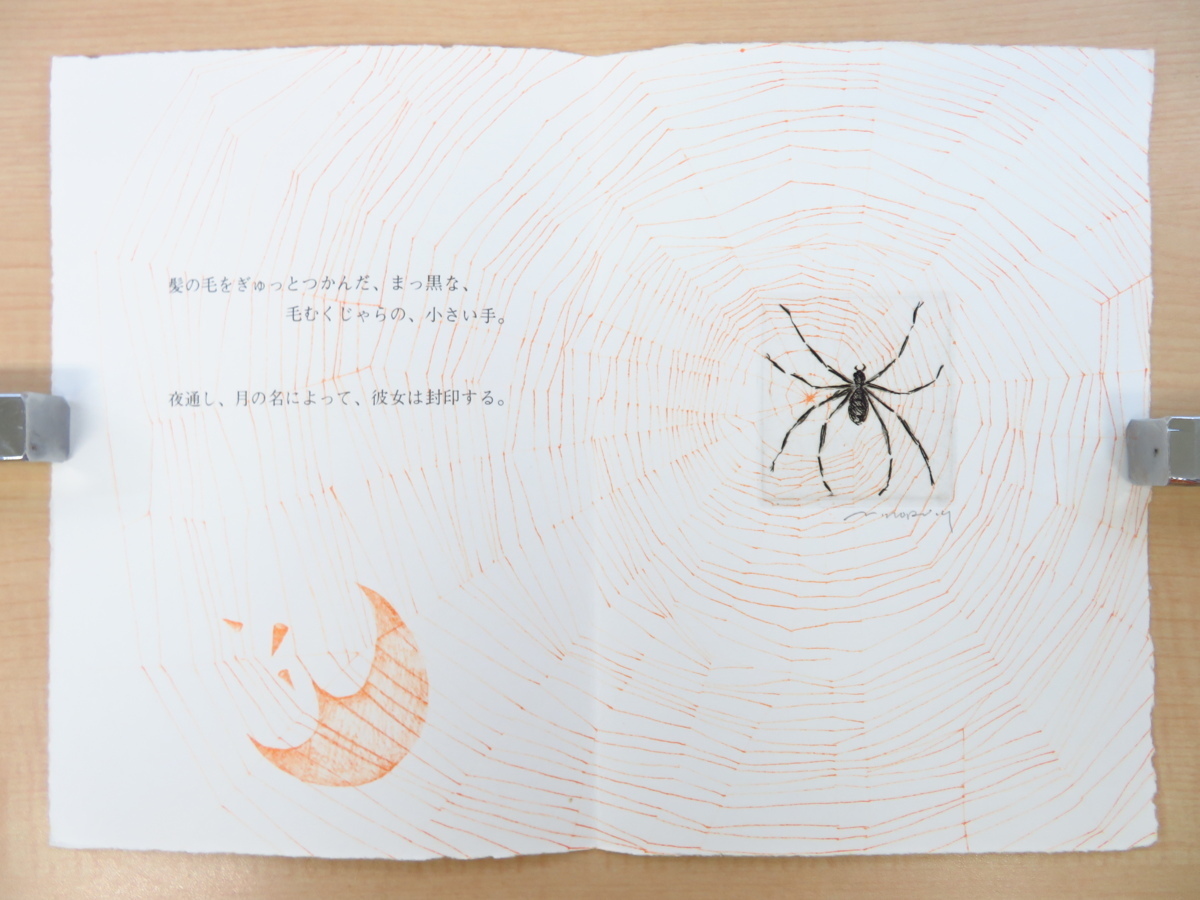 髪の毛をぎゅっとつかんだ、まっ黒な、
毛むくじゃらの、小さい手。
夜通し、月の名によって、彼女は封印する。